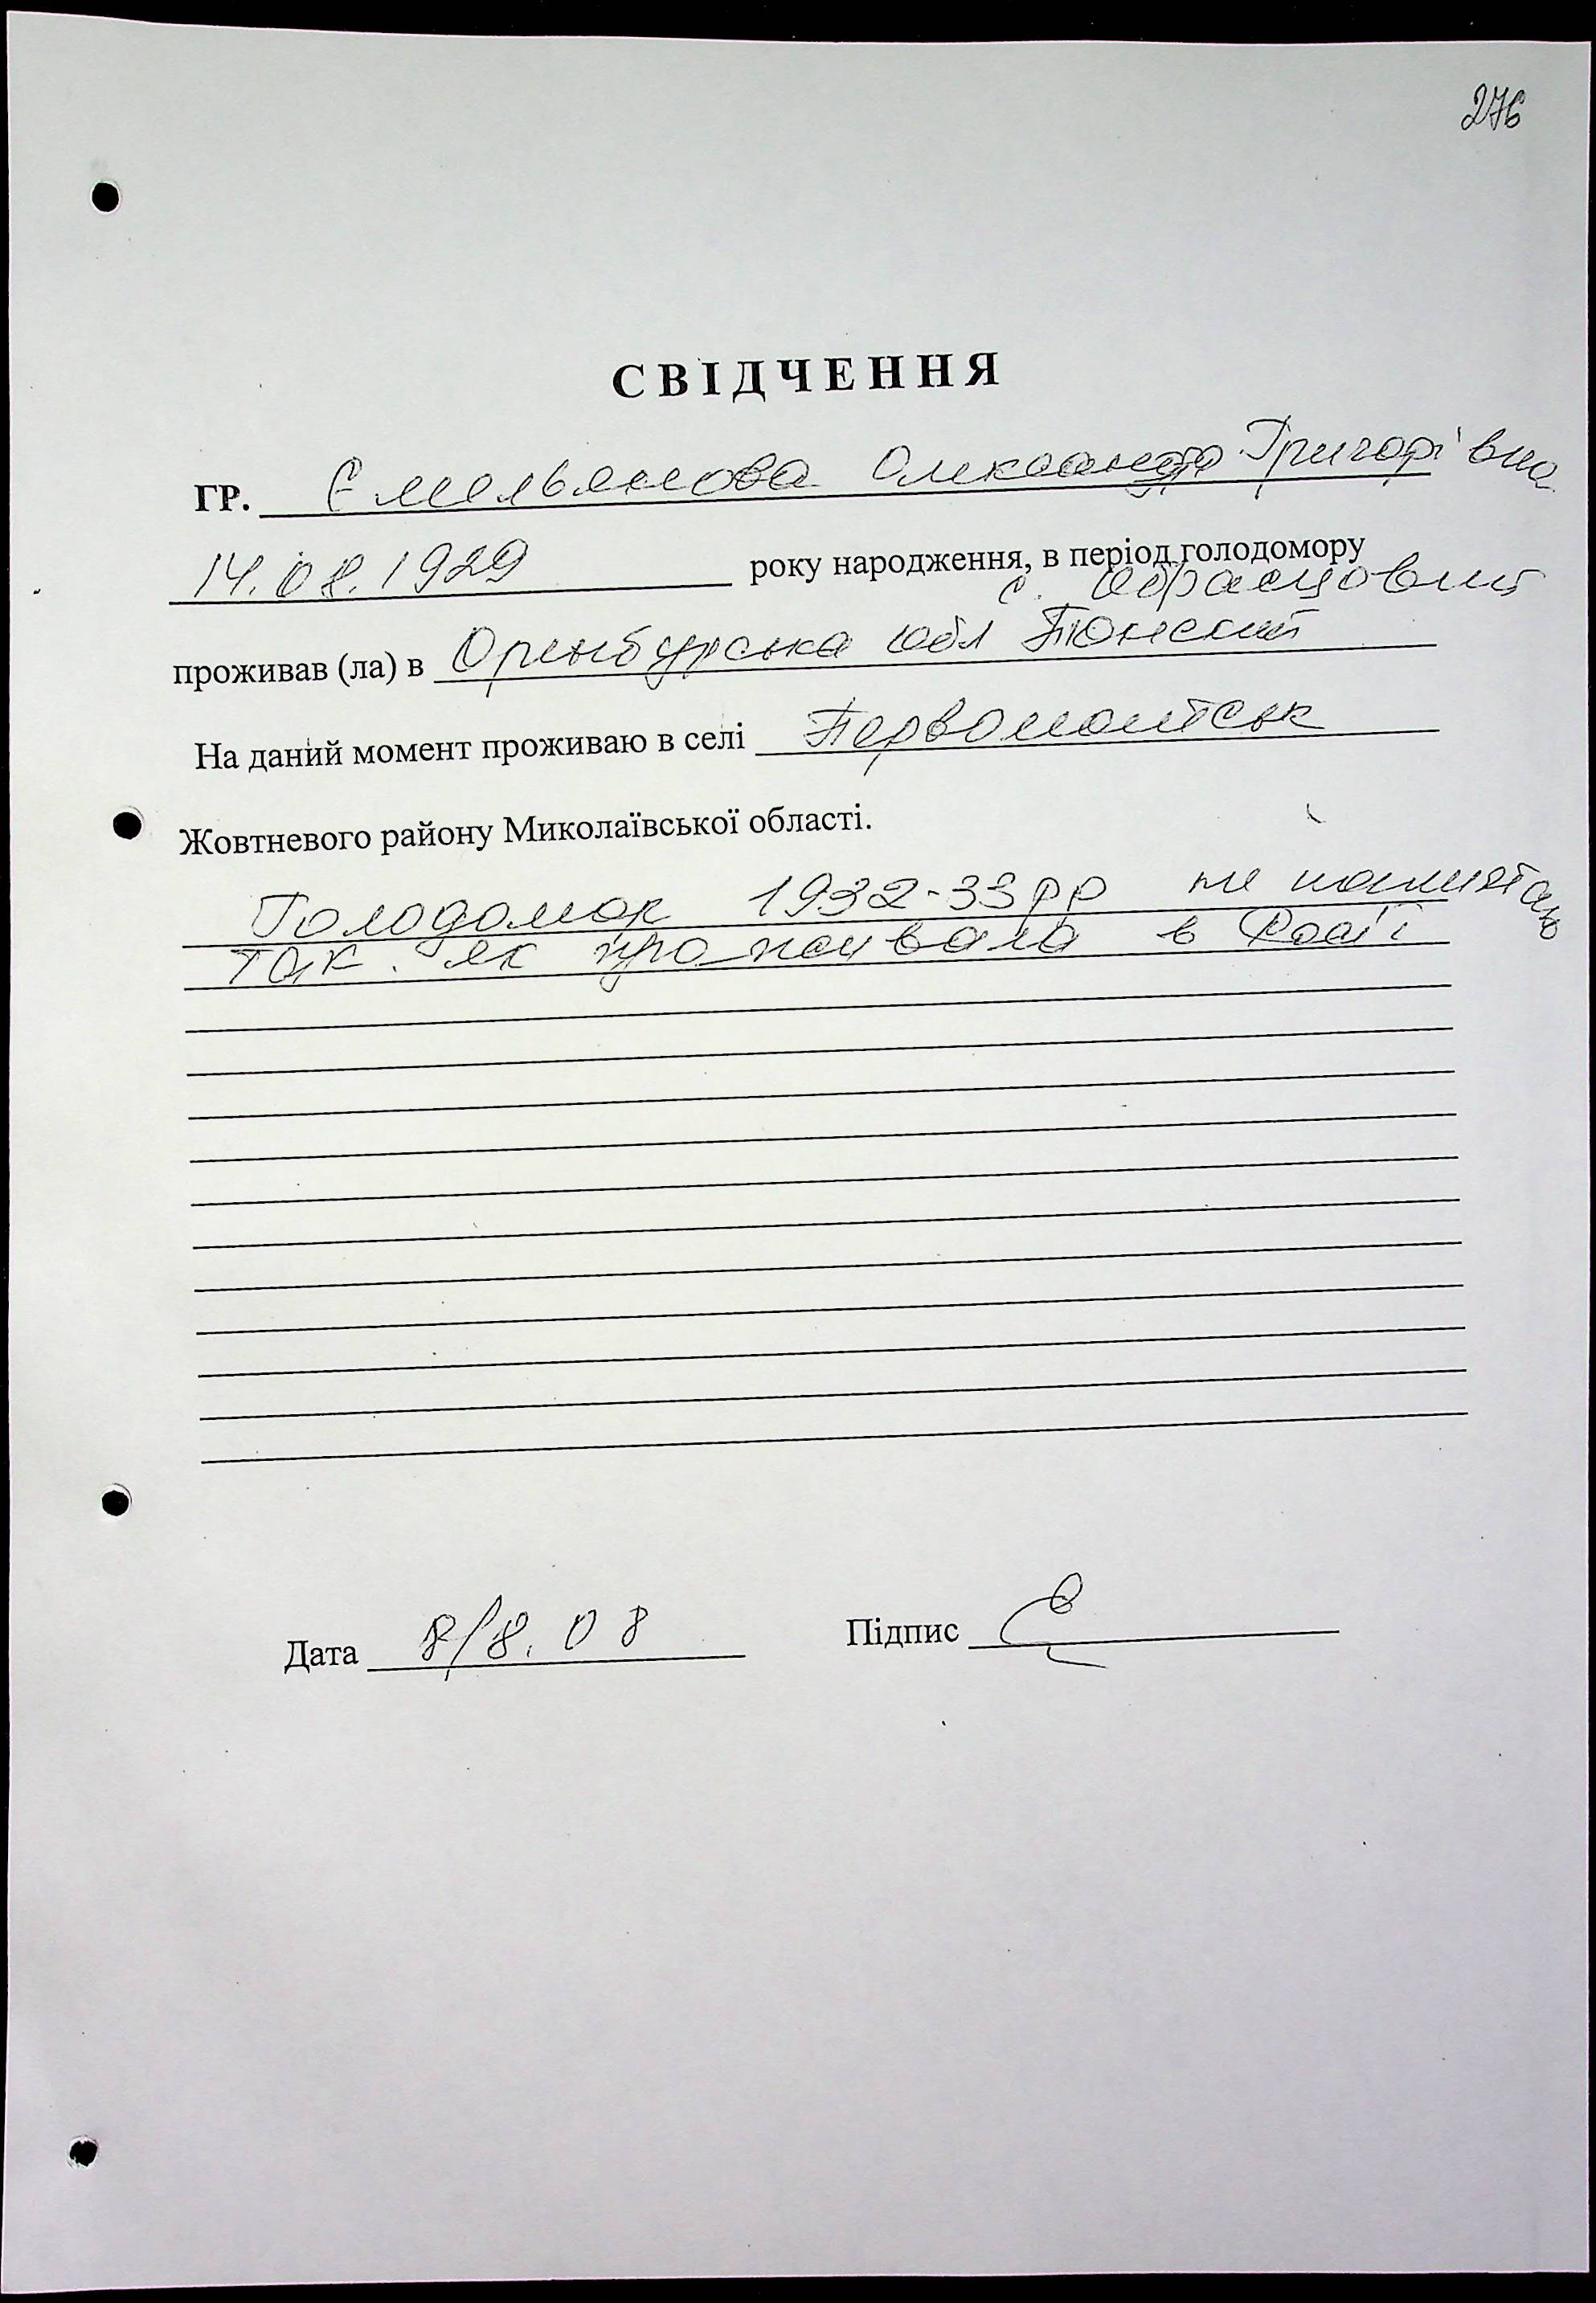 276
СВІДЧЕННЯ
ГР. Ємельянова Олександра Григорівна
14.08.1929 року народження, в період голодомору
с.
проживав (ла) в Оренбурська обл
На даний момент проживаю в селі Первомайськ
Жовтневого району Миколаївської області.
Голодомор 1932-33 рр не памятаю
так як проживала в Росії
Дата 8/8.08 Підпис